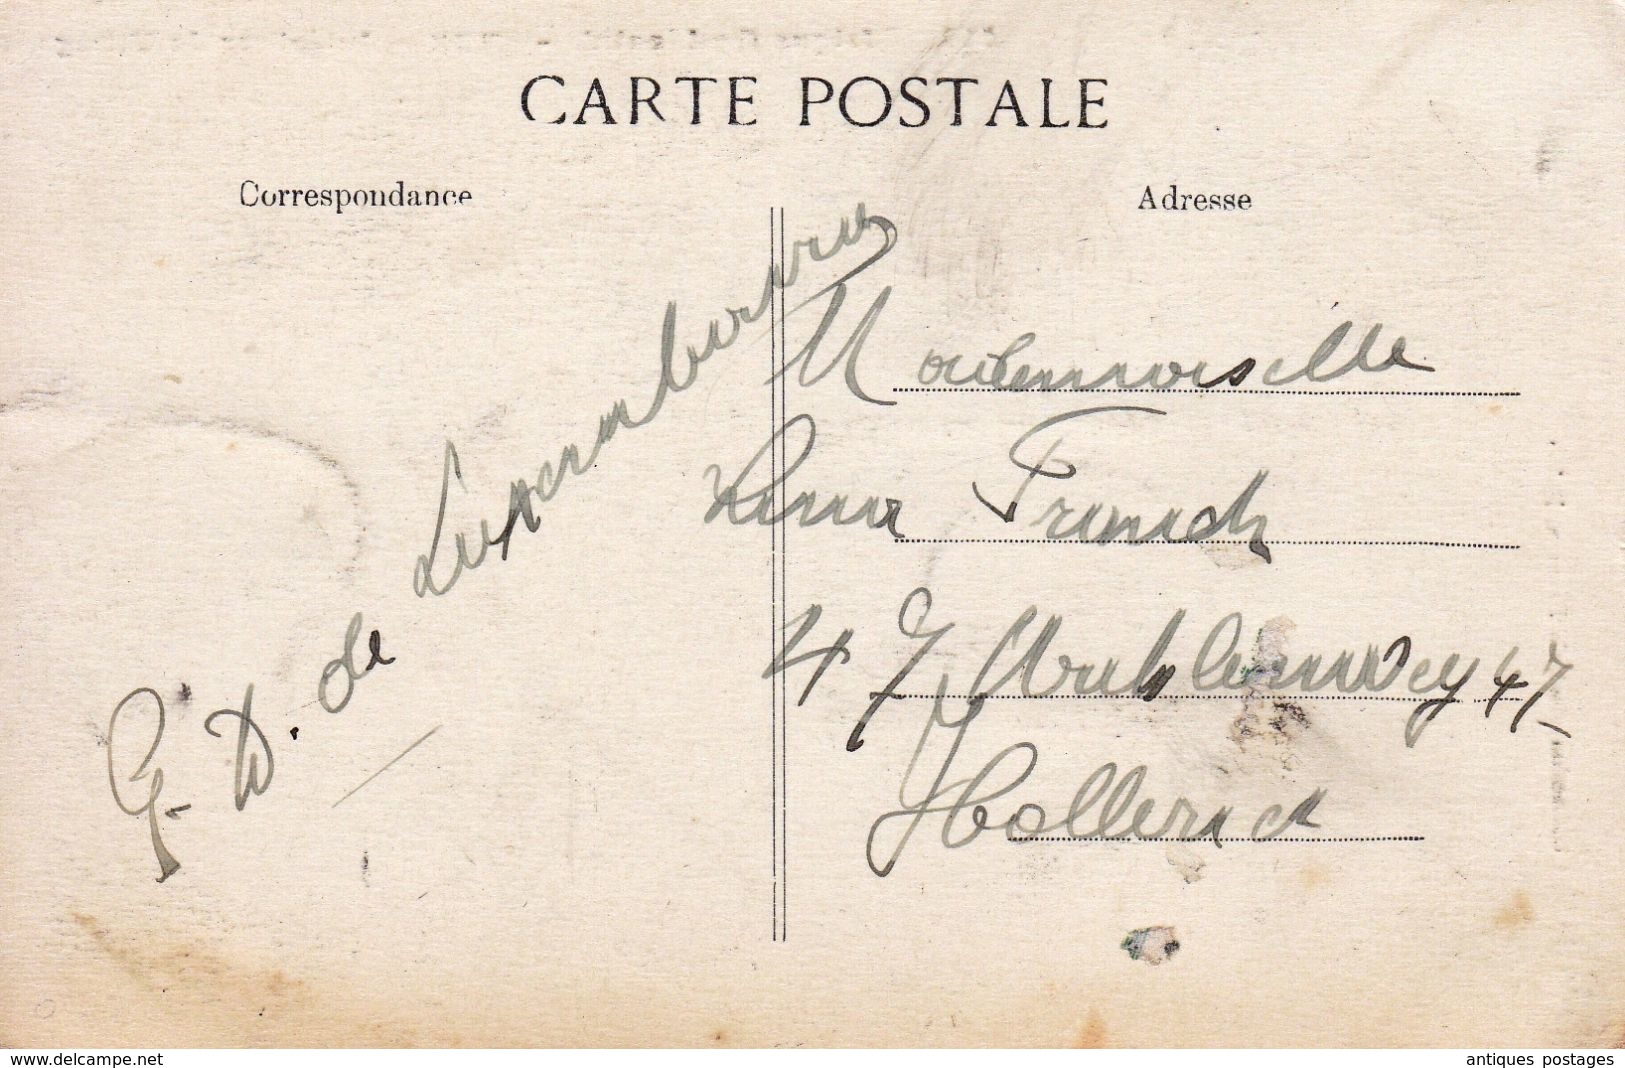 CARTE POSTALE
Correspondance
Adresse
G. D. de Luxembourg
Mademoiselle
Franck
47 47
Hollerich
www.delcampe.net
antiques postages